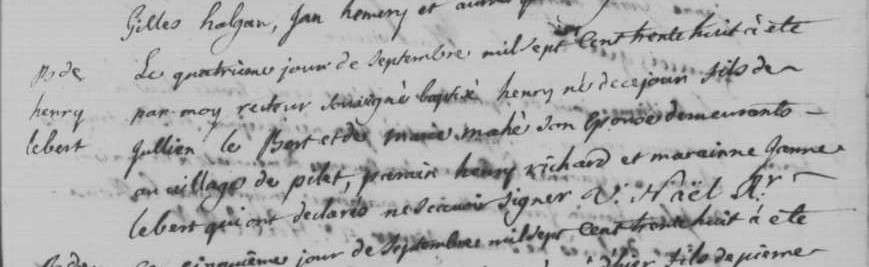 Gilles halgan, Jan hemery et
Le quatrieme jour de Septembre mil sept Cent trente huit à ete
Bs de
par moy recteur sousigné baptisé henry né de ce jour fils de
henry
Jullien le Bert et de marie mahé son Epouse demeurants
lebert
au village de pilet, parrain henry richard et marainne Janne
lebert qui ont declarés ne sçavoir signer V. Naël Rr
cinquième jour de Septembre mil sept Cent trente huit à ete
fils de pierre